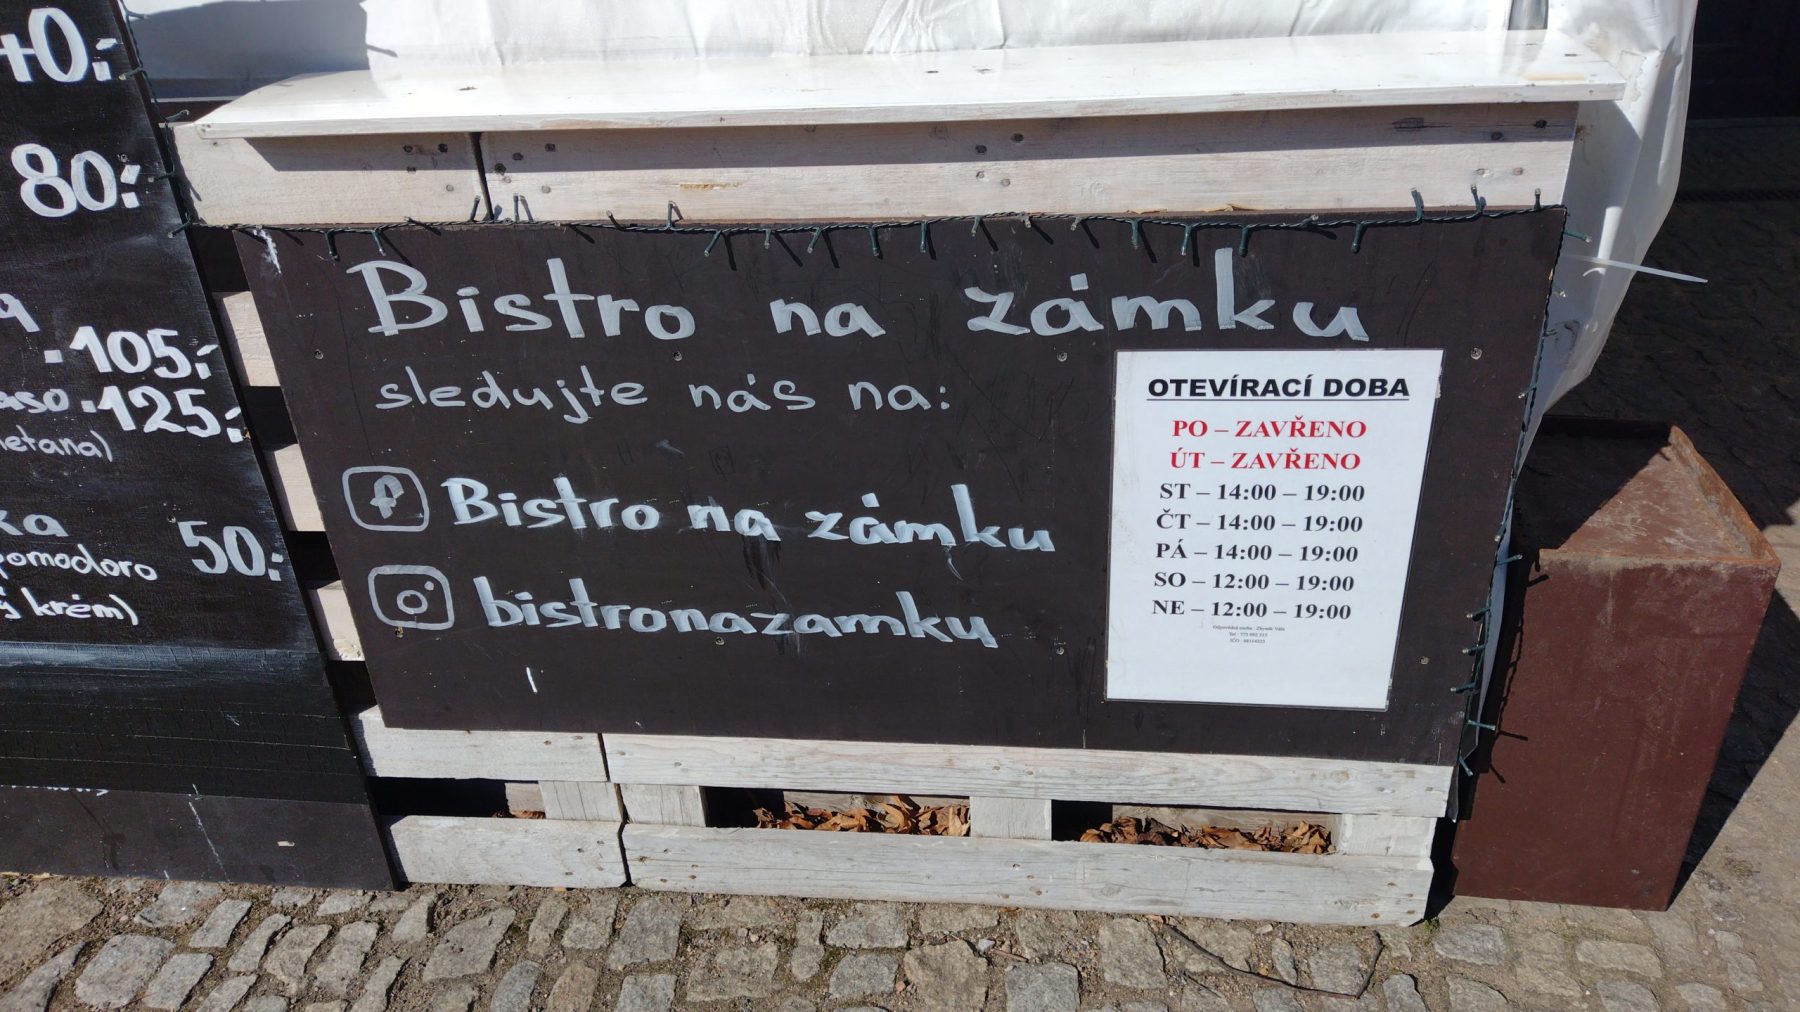 80:-
105,-
125,-
50:-
pomodoro
krém)
Bistro na zámku
sledujte nás na:
Bistro na zámku
bistronazamku
OTEVÍRACÍ DOBA
PO – ZAVŘENO
ÚT – ZAVŘENO
ST – 14:00 – 19:00
ČT – 14:00 – 19:00
PÁ – 14:00 – 19:00
SO – 12:00 – 19:00
NE – 12:00 – 19:00
Odpovědná osoba